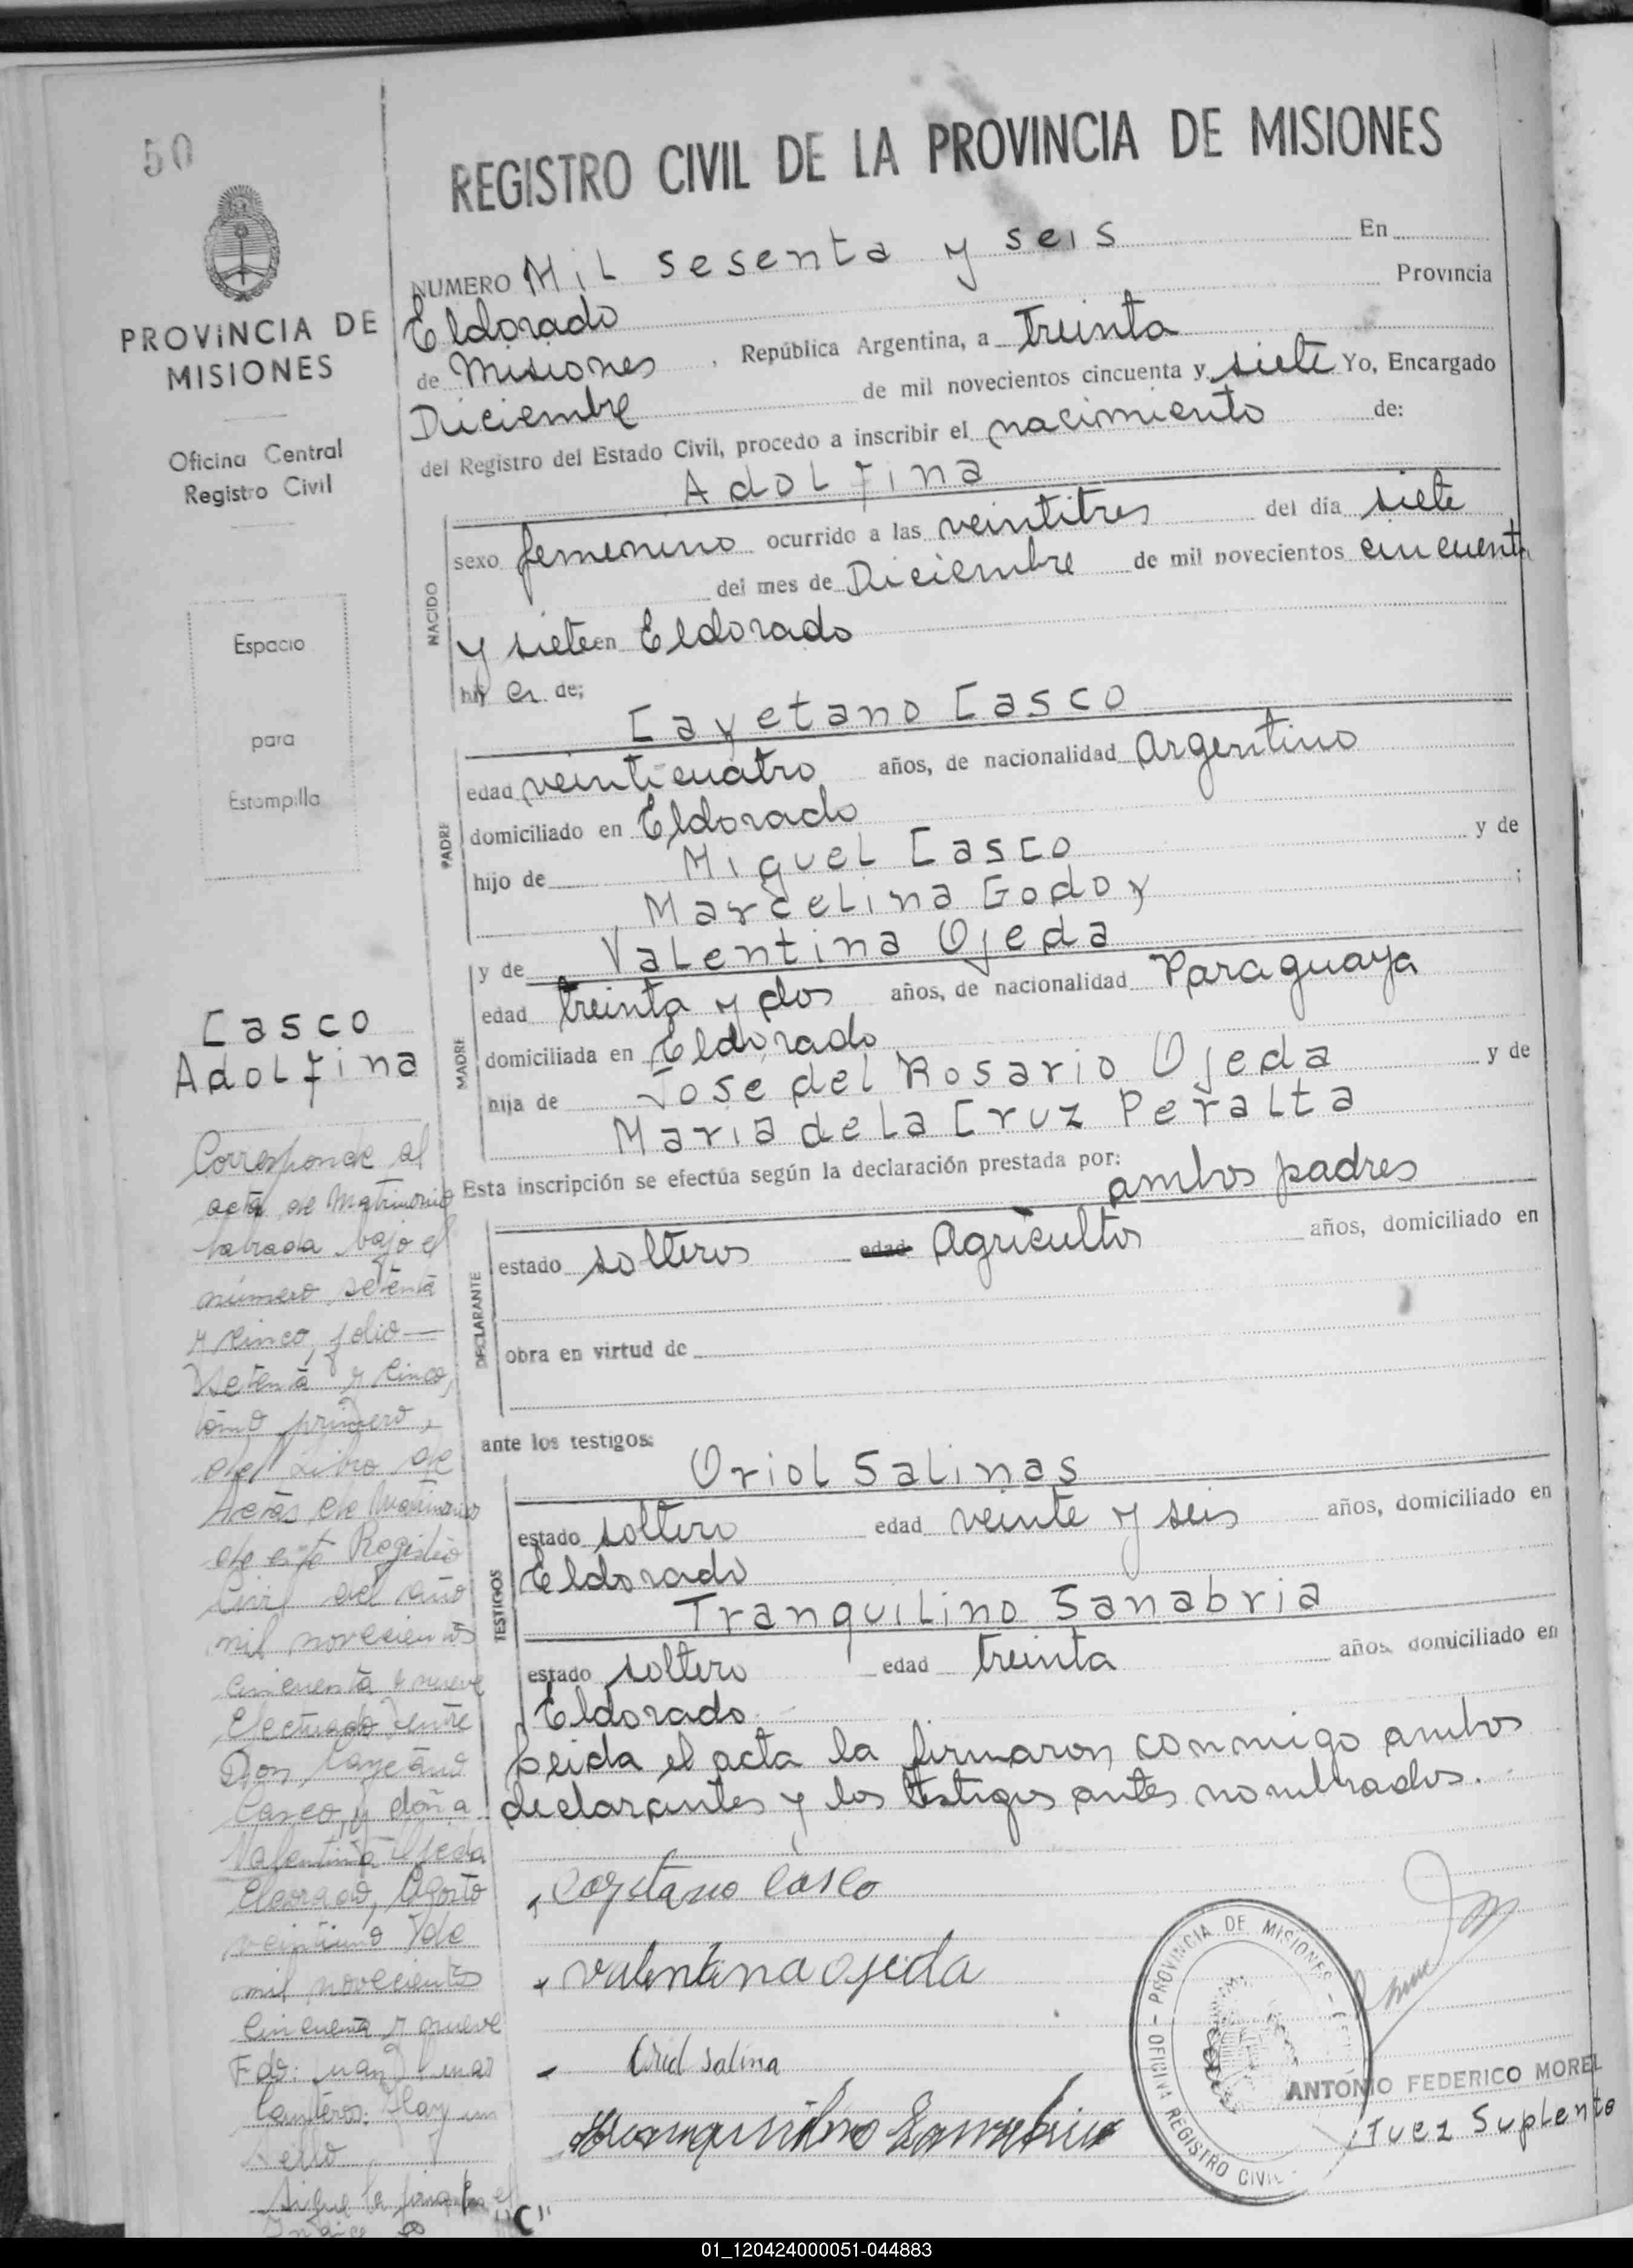 50
REGISTRO CIVIL DE LA PROVINCIA DE MISIONES
PROVINCIA DE
MISIONES
Oficina Central
Registro Civil
Espacio
para
Estampilla
Casco
Adolfina
Corresponde al
acta de Matrimonio
labrada bajo el
número setenta
y cinco, folio
setenta y cinco,
tomo primero,
del Libro de
Actas de Matrimonios
de este Registro
Civil del año
mil novecientos
cincuenta y nueve
Efectuado entre
Don Cayetano
Casco y doña
Valentina Ojeda
Eldorado, Agosto
veintiuno de
mil novecientos
cincuenta y nueve
Fdo: Juan
Hay un
sello
Sigue la
Indice "C"
NUMERO Mil sesenta y seis En
Eldorado Provincia
de Misiones, República Argentina, a treinta
Diciembre de mil novecientos cincuenta y siete Yo, Encargado
del Registro del Estado Civil, procedo a inscribir el nacimiento de:
Adolfina
NACIDO
sexo femenino ocurrido a las veintitres del día siete
del mes de Diciembre de mil novecientos cincuenta
y siete en Eldorado
hij a de;
Cayetano Casco
PADRE
edad veinticuatro años, de nacionalidad Argentino
domiciliado en Eldorado
hijo de Miguel Casco y de
Marcelina Godoy ;
MADRE
y de Valentina Ojeda
edad treinta y dos años, de nacionalidad Paraguaya
domiciliada en Eldorado
hija de Jose del Rosario Ojeda y de
Maria de la Cruz Peralta
Esta inscripción se efectúa según la declaración prestada por:
ambos padres
DECLARANTE
estado solteros edad Agricultor años, domiciliado en
obra en virtud de
ante los testigos:
Oriol Salinas
TESTIGOS
estado soltero edad veinte y seis años, domiciliado en
Eldorado
Tranquilino Sanabria
estado soltero edad treinta años, domiciliado en
Eldorado
Leida el acta la firmaron conmigo ambos
declarantes y los testigos antes nombrados.
Cayetano Casco
Valentina Ojeda
Oriol Salina
Tranquilino Sanabria
PROVINCIA DE MISIONES
OFICINA REGISTRO CIVIL
ANTONIO FEDERICO MOREL
Juez Suplente
01_120424000051-044883